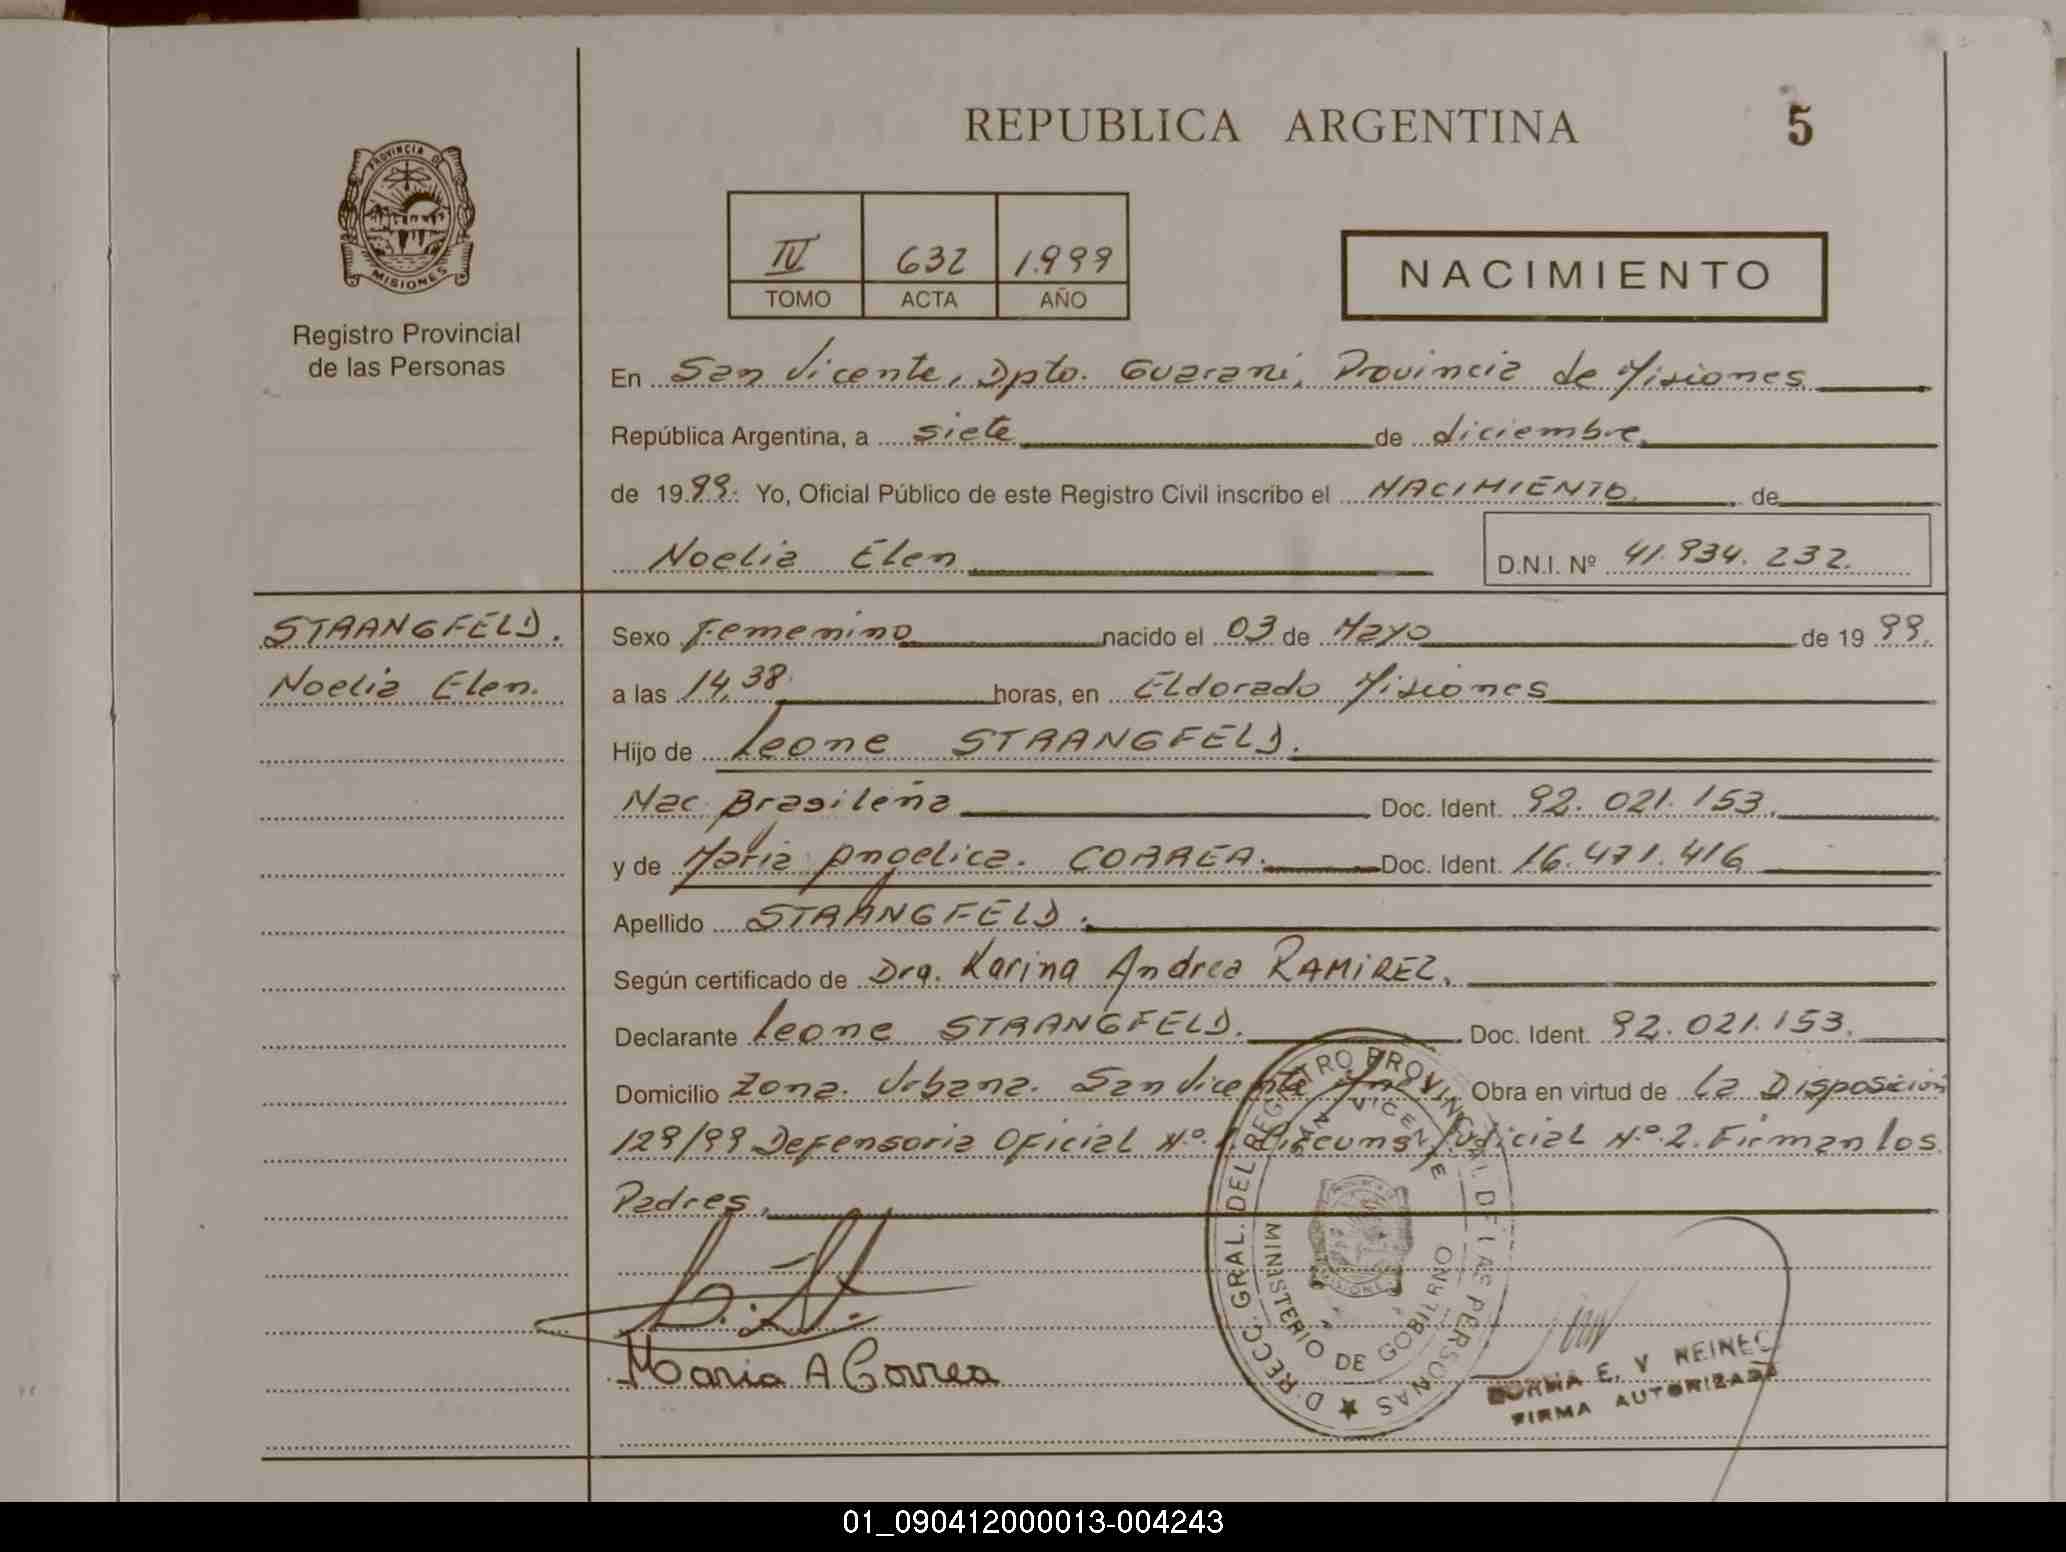 REPUBLICA ARGENTINA
5
PROVINCIA DE
MISIONES
Registro Provincial
de las Personas
IV 632 1.999
TOMO ACTA AÑO
NACIMIENTO
En San Vicente, Dpto. Guarani, Provincia de Misiones
República Argentina, a siete de diciembre,
de 19 99. Yo, Oficial Público de este Registro Civil inscribo el NACIMIENTO de
Noelia Elen
D.N.I. Nº 41.934.232.
STRANGFELD.
Noelia Elen.
Sexo Femenino nacido el 03 de Mayo de 19 99.
a las 14,38 horas, en Eldorado Misiones
Hijo de Leone STRANGFELD.
Nac. Brasileña Doc. Ident. 92.021.153.
y de Maria Angelica. CORREA. Doc. Ident. 16.471.416
Apellido STRANGFELD.
Según certificado de Dra. Karina Andrea RAMIREZ.
Declarante Leone STRANGFELD. Doc. Ident. 92.021.153.
Domicilio Zona. Urbana. San Vicente Obra en virtud de La Disposición
129/99 Defensoria Oficial Nº 1. Circuns. Judicial Nº 2. Firman los
Padres.
Maria A Correa
D RECC. GRAL. DEL REGISTRO PROVINCIAL DE LAS PERSONAS
SAN VICENTE
MINISTERIO DE GOBIERNO
MISIONES
E. V REINEC
FIRMA AUTORIZADA
01_090412000013-004243